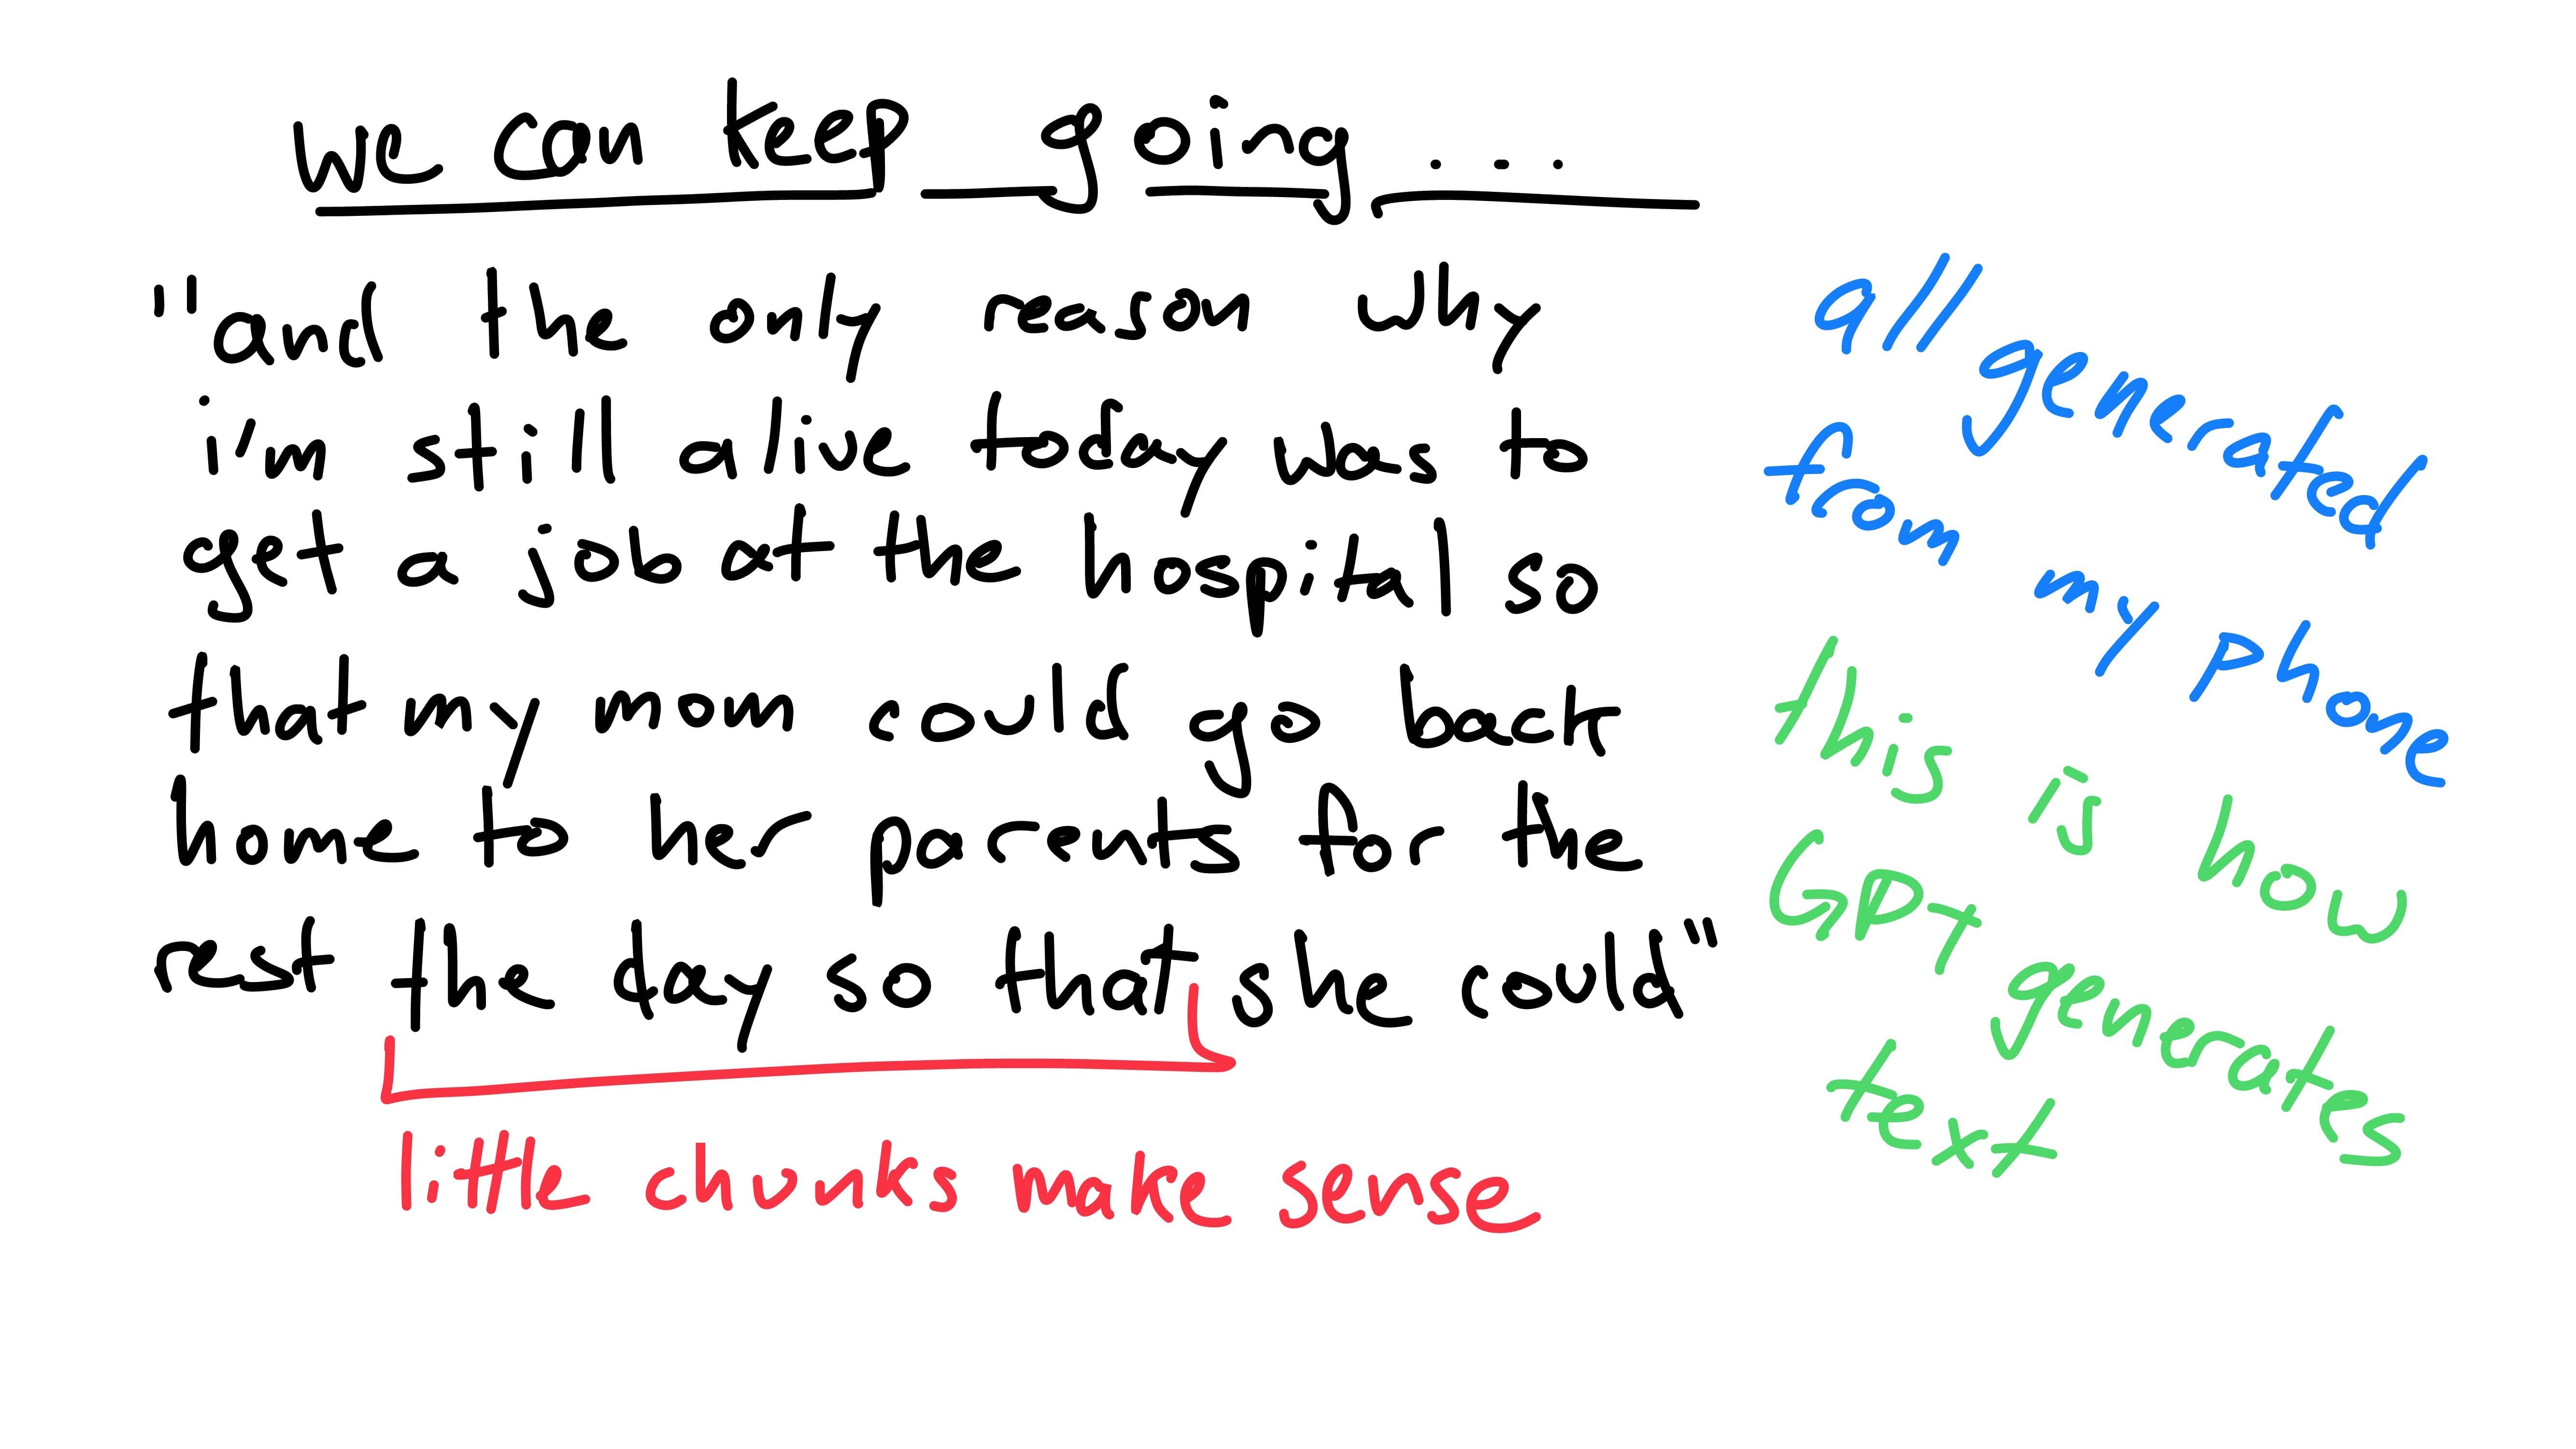 we can keep going...
"and the only reason why
i'm still alive today was to
get a job at the hospital so
that my mom could go back
home to her parents for the
rest the day so that she could"
little chunks make sense
all generated
from my phone
this is how
GPT generates
text